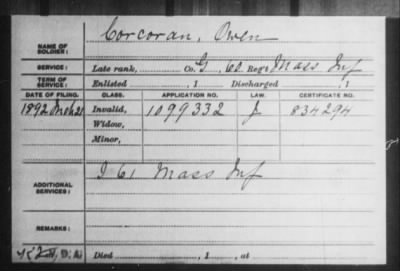 Corcoran, Owen
NAME OF SOLDIER:
SERVICE: Late rank, Co. G, 62 Reg't Mass Inf
TERM OF SERVICE: Enlisted , 1 Discharged , 1
DATE OF FILING. CLASS. APPLICATION NO. LAW. CERTIFICATE NO.
1892 Mch 21 Invalid, 1099332 J 834294
Widow,
Minor,
I 61 Mass Inf
ADDITIONAL SERVICES:
REMARKS:
Died , 1 , at